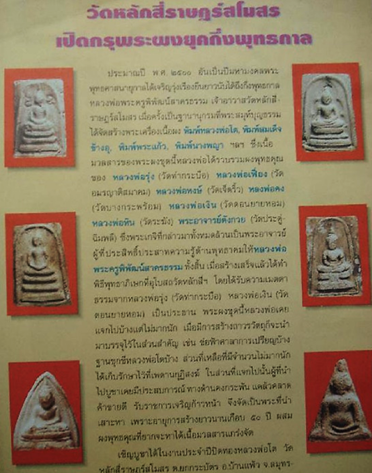 วัดหลักสี่ราษฎร์สโมสร
เปิดกรุพระผงยุคกึ่งพุทธกาล
ประมาณปี พ.ศ.๒๕๐๐ อันเป็นปีมหามงคลพระ
พุทธศาสนายุกาลได้เจริญรุ่งเรืองยืนยาวนับได้ถึงกึ่งพุทธกาล
หลวงพ่อพระครูพิพัฒน์สาครธรรม เจ้าอาวาสวัดหลักสี่-
ราษฎร์สโมสร เมื่อครั้งเป็นฐานานุกรมที่พระสมุห์บุญธรรม
ได้จัดสร้างพระเครื่องเนื้อผง พิมพ์หลวงพ่อโต, พิมพ์สมเด็จ
ข้างอุ, พิมพ์พระแก้ว, พิมพ์นางพญา ฯลฯ ซึ่งเนื้อ
มวลสารของพระผงชุดนี้หลวงพ่อได้รวบรวมผงพุทธคุณ
ของ หลวงพ่อรุ่ง (วัดท่ากระบือ) หลวงพ่อเฟื่อง (วัด
อมรญาติสมาคม) หลวงพ่อหงษ์ (วัดเจ็ดริ้ว) หลวงพ่อคง
(วัดบางกระพ้อม) หลวงพ่อเงิน (วัดดอนยายหอม)
หลวงพ่อหิน (วัดระฆัง) พระอาจารย์คังกวย (วัดประดู่-
ฉิมพลี) ซึ่งพระเกจิที่กล่าวมาทั้งหมดล้วนเป็นพระอาจารย์
ผู้ที่ประสิทธิ์ประสาทความรู้ด้านพุทธาคมให้หลวงพ่อ
พระครูพิพัฒน์สาครธรรม ทั้งสิ้น เมื่อสร้างเสร็จแล้วได้ทำ
พิธีพุทธาภิเษกที่อุโบสถวัดหลักสี่ฯ โดยได้รับความเมตตา
ธรรมจากหลวงพ่อรุ่ง (วัดท่ากระบือ) หลวงพ่อเงิน (วัด
ดอนยายหอม) เป็นประธาน พระผงชุดนี้หลวงพ่อเคย
แจกไปบ้างแต่ไม่มากนัก เมื่อมีการสร้างถาวรวัตถุก็จะนำ
มาบรรจุไว้ในส่วนสำคัญ เช่น ช่อฟ้าศาลาการเปรียญบ้าง
ฐานชุกชีหลวงพ่อโตบ้าง ส่วนที่เหลือที่มีจำนวนไม่มากนัก
ได้เก็บรักษาไว้ที่เพดานกุฏิสงฆ์ ในส่วนที่แจกไปนั้นผู้ที่นำ
ไปบูชาเคยมีประสบการณ์ ทางด้านคงกระพัน แคล้วคลาด
ค้าขายดี รับราชการเจริญก้าวหน้า จึงจัดเป็นพระที่น่า
เสาะหา เพราะอายุการสร้างยาวนานเกือบ ๕๐ ปี ผสม
ผงพุทธคุณที่ยากจะหาได้เนื้อมวลสารแกร่งจัด
เชิญบูชาได้ในงานประจำปีปิดทองหลวงพ่อโต วัด
หลักสี่ราษฎร์สโมสร ต.ยกกระบัตร อ.บ้านแพ้ว จ.สมุทร